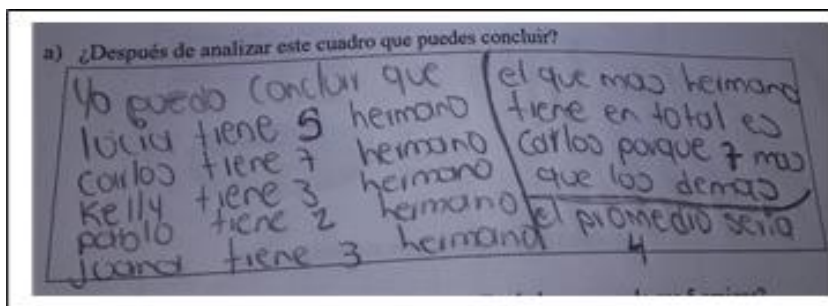 a) ¿Después de analizar este cuadro que puedes concluir?
Yo puedo concluir que
lucia tiene 5 hermano
carlos tiene 7 hermano
Kelly tiene 3 hermano
pablo tiene 2 hermano
juana tiene 3 hermana
el que mas hermano
tiene en total es
Carlos porque 7 mas
que los demas
el promedio seria
4